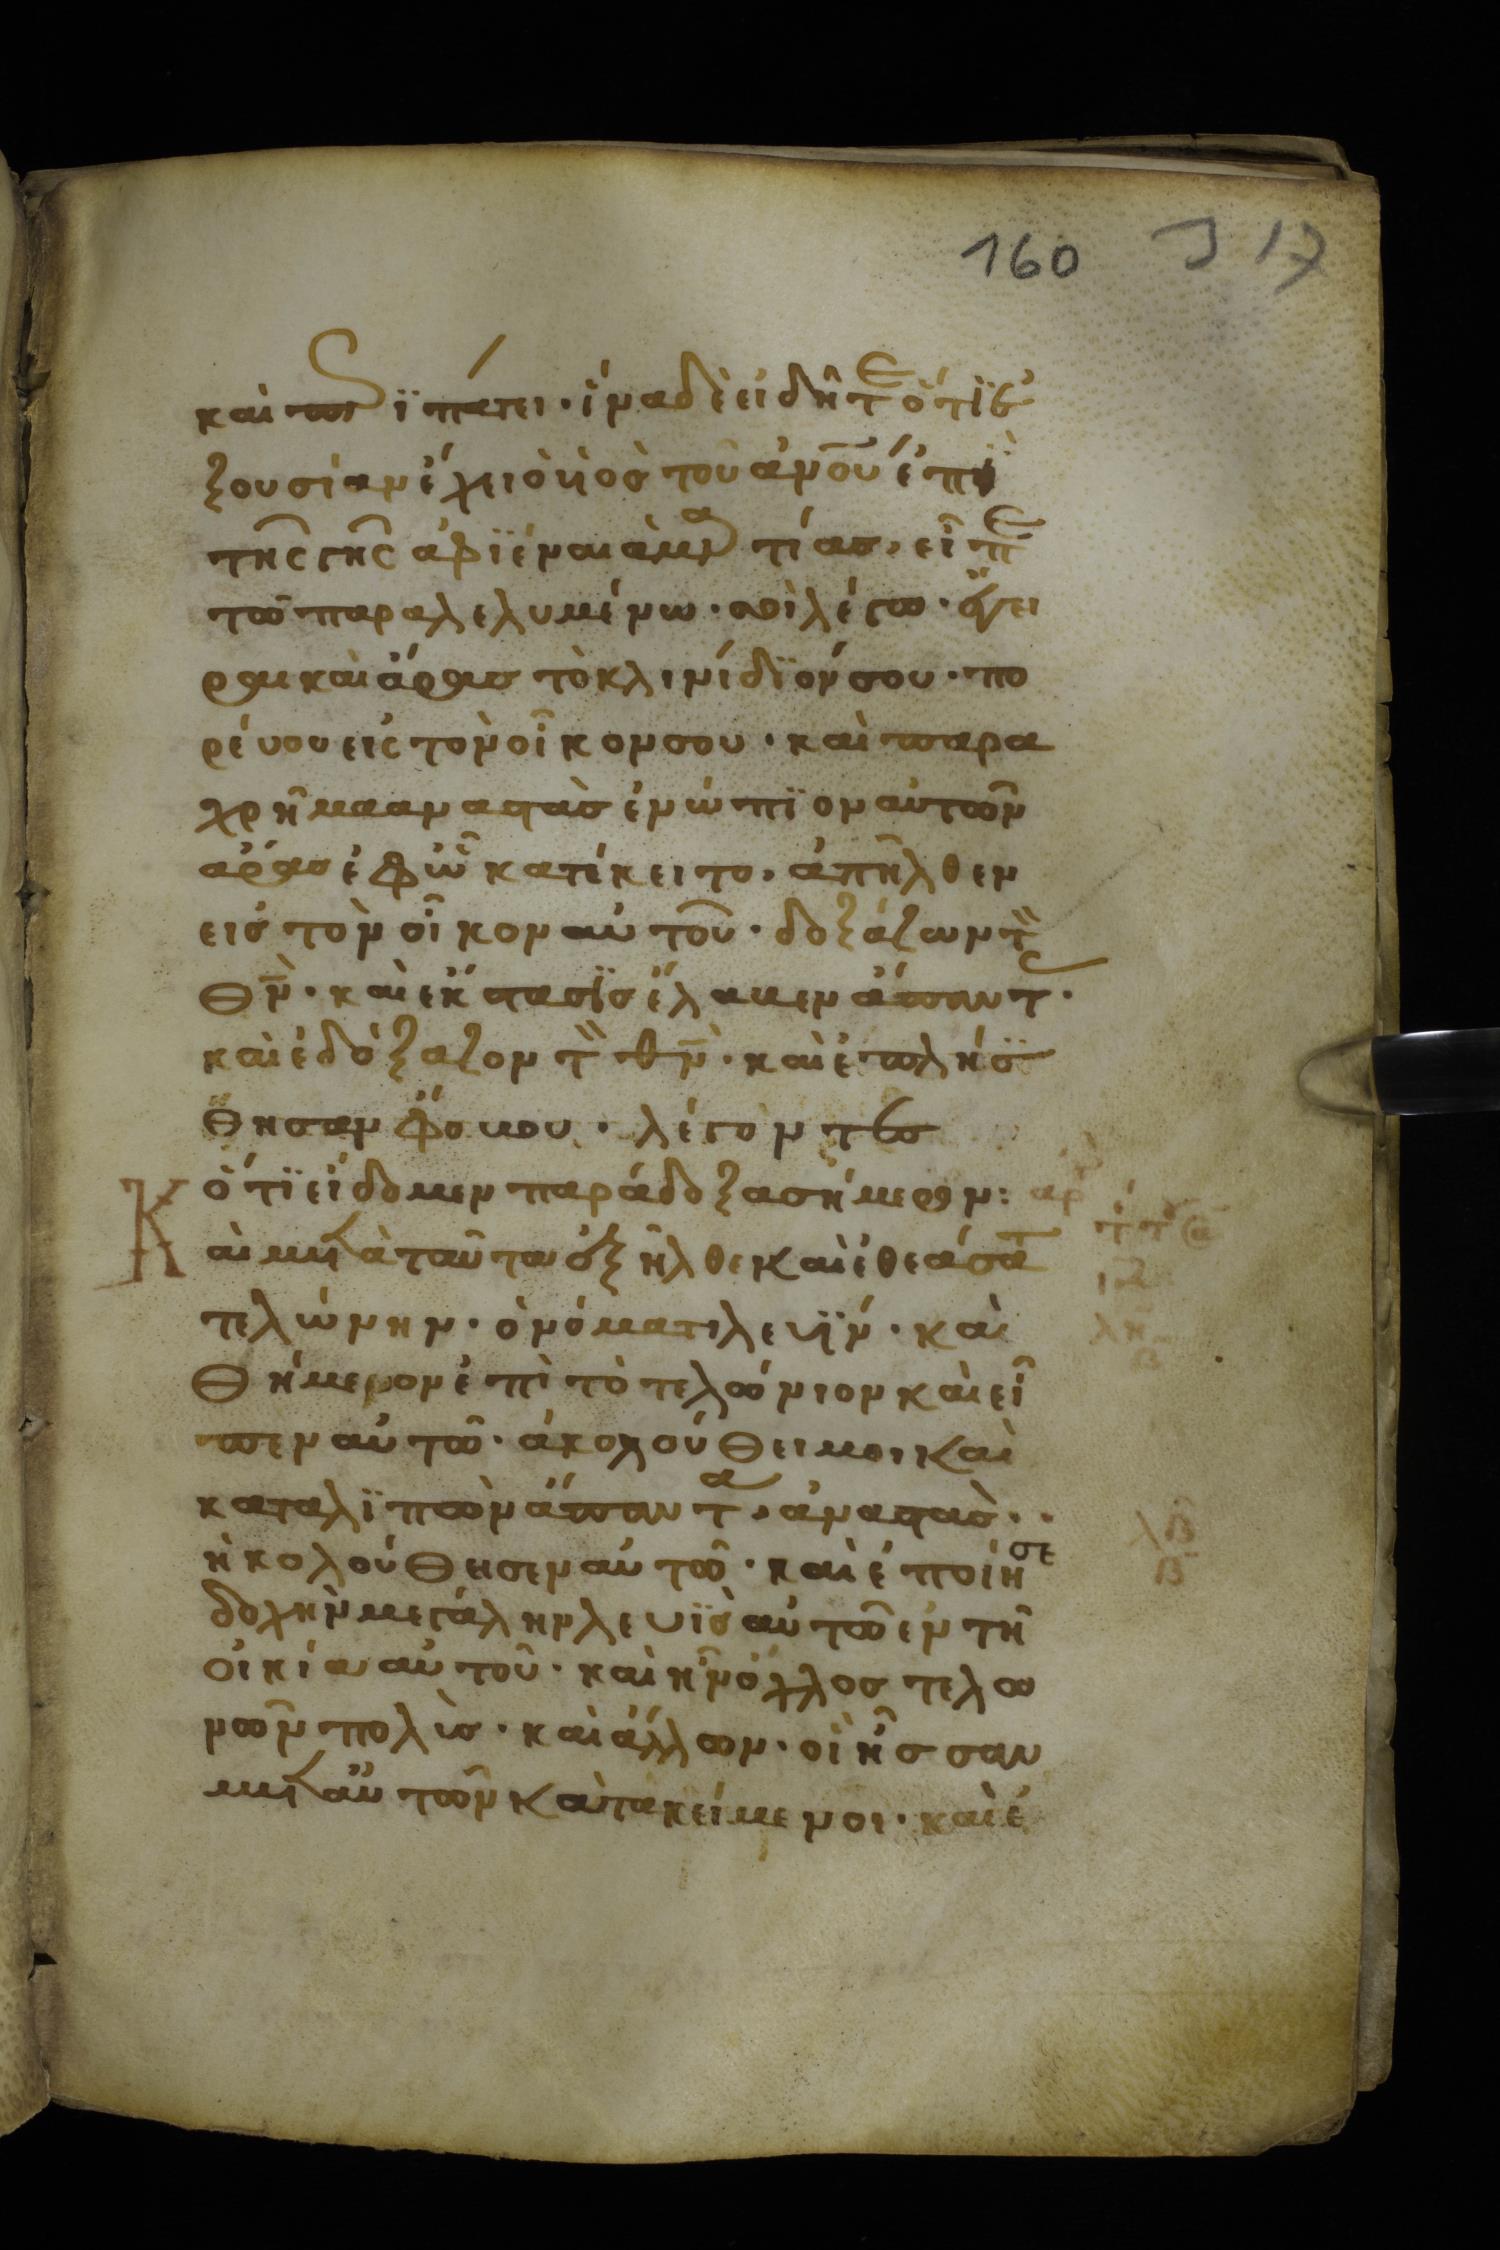 160 J 17
καὶ περιπάτει· ἵνα δὲ εἰδῆτε ὅτι ἐ
ξουσίαν ἔχει ὁ ὑὸς τοῦ ἀνου ἐπὶ
τῆς γῆς ἀφϊέναι ἁμαρτίας, εἶπε
τῶ παραλελυμένω· σοὶ λέγω· ἔγει
ραι καὶ ἄρας τὸ κλινίδϊόν σου· πο
ρέυου εἰς τὸν οἶκον σου· καὶ παρα
χρῆμα αναστὰς ἐνώπϊον αὐτῶν
ἄρας ἐφ ὧ κατέκειτο, ἀπῆλθεν
εἰς τὸν οἶκον αὐτοῦ· δοξάζων τὸν
θν· καὶ ἔκστασϊς ἔλαβεν ἅπαντας·
καὶ ἐδόξαζον τὸν θν· καὶ ἐπλήσ
θησαν φόβου· λέγοντες
ὅτϊ εἴδομεν παράδοξα σήμερον: αρ
Καὶ μετὰ ταῦτα ἐξῆλθε καὶ ἐθεάσατο
τελώνην· ὀνόματι λευΐν· καὶ
θήμενον ἐπὶ τὸ τελώνιον καὶ εἶ
πεν αὐτῶ· ἀκολούθει μοι καὶ
καταλϊπὼν ἅπαντα, ἀναστὰς··
ἠκολούθησεν αὐτῶ· καὶ ἐποίησε
δοχὴν μεγάλην λευῒς αὐτῶ ἐν τῆ
οἰκία αὐτοῦ· καὶ ἦν ὄχλος τελω
νῶν πολὺς· καὶ ἄλλων· οἳ ἦσσαν
μετ αὐτῶν κατακείμενοι· καὶ ἐ
λη
β
λβ
β